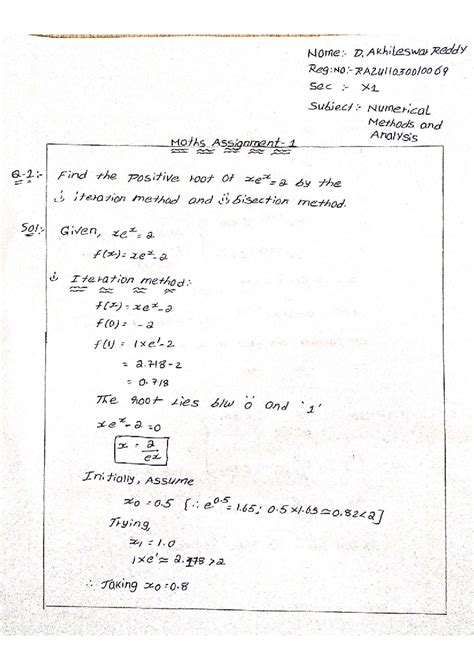 Name:- D. Akhileswar Reddy
Reg:No:- RA2411030010069
Sec :- X1
Subject:- Numerical
Methods and
Analysis
Maths Assignment-1
Q-1:- Find the positive root of xe^x=2 by the
i) iteration method and ii) bisection method.
Sol:- Given, xe^x=2
f(x)=xe^x-2
i) Iteration method:-
f(x)=xe^x-2
f(0)= -2
f(1) = 1xe^1-2
= 2.718-2
= 0.718
The root lies b/w '0' and '1'
xe^x-2=0
x = 2/e^x
Initially, Assume
x0 =0.5 [∵ e^0.5=1.65; 0.5×1.65≃0.82<2]
Trying,
x1 = 1.0
1xe^1≃ 2.718 >2
∴ Taking x0=0.8